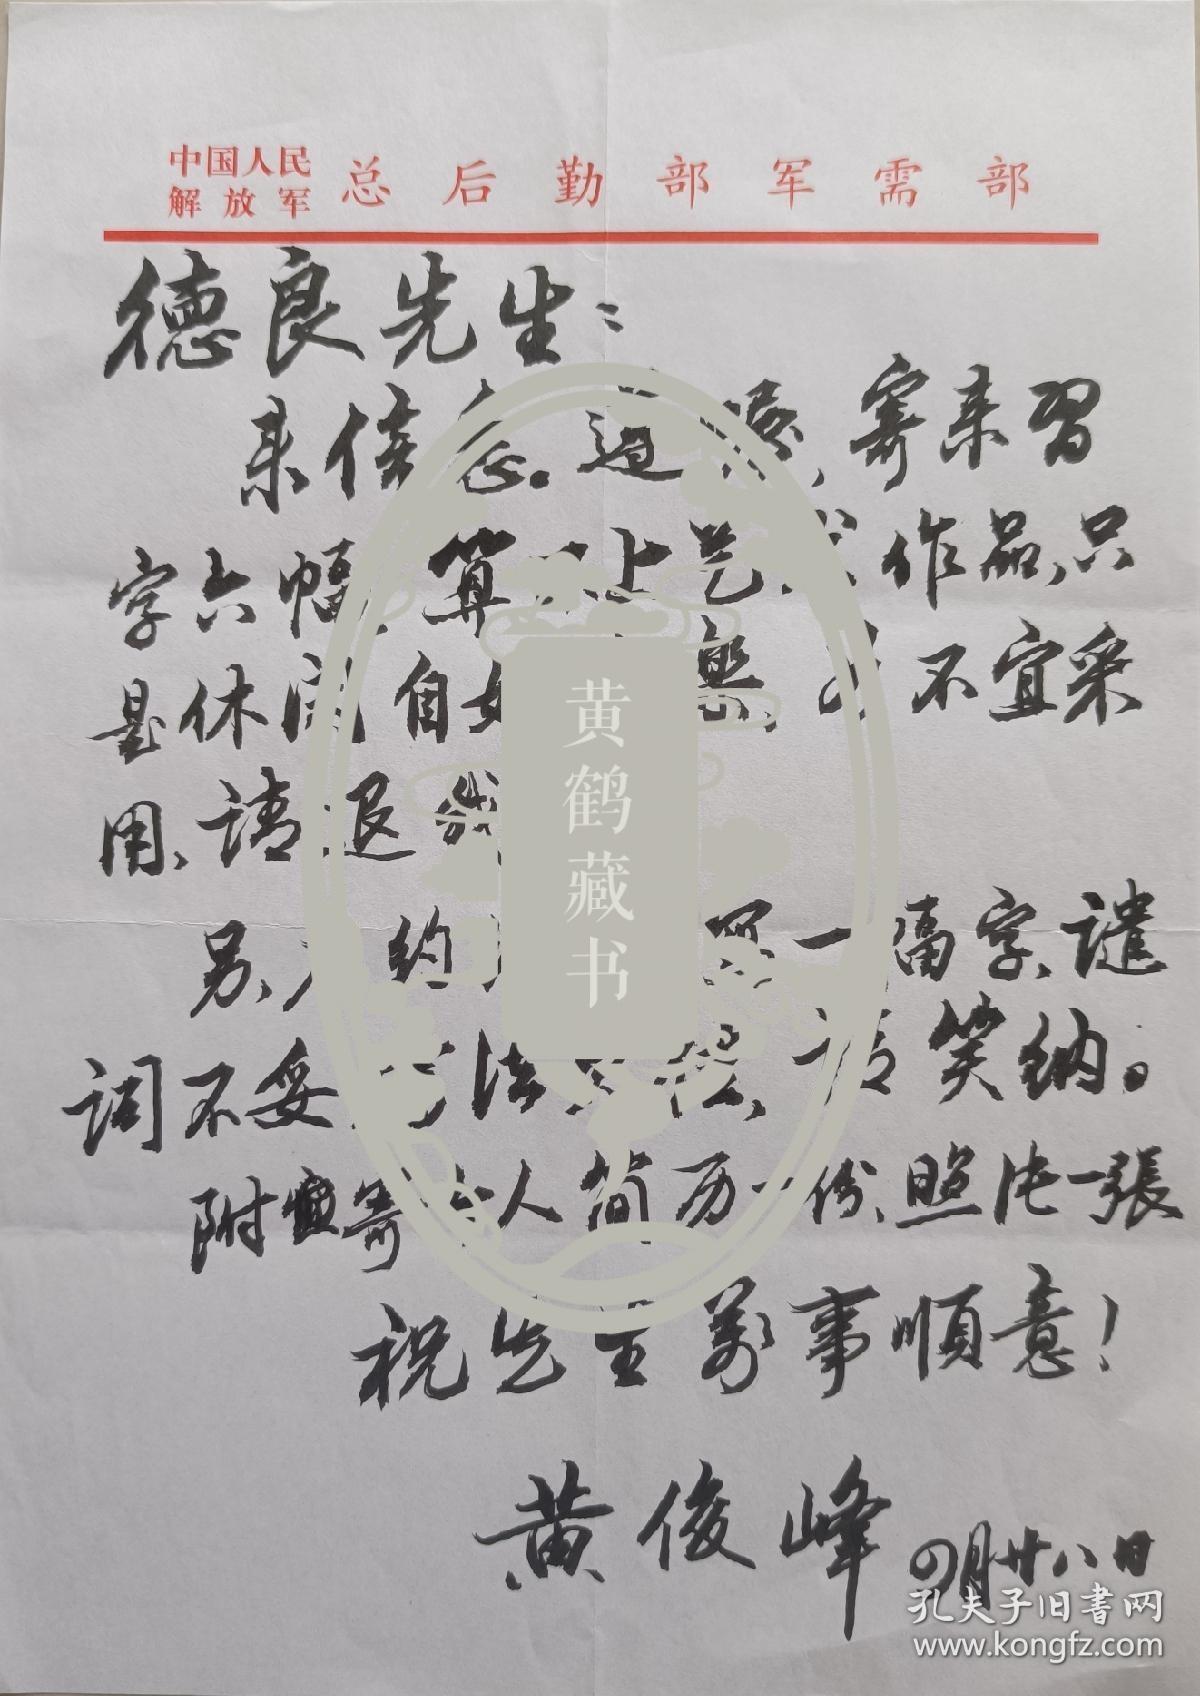 中国人民
解放军 总后勤部军需部
德良先生：
来信悉。遵嘱，寄来习
字六幅，算不上艺术作品，只
是休闲自娱 ，不宜采
用、请退我
另， 约 一幅字、谴
词不妥， 法 ，请笑纳。
附 寄本人简历一份、照片一張
祝先生万事順意！
黄俊峰 四月廿八日
黄鹤藏书
孔夫子旧書网
www.kongfz.com